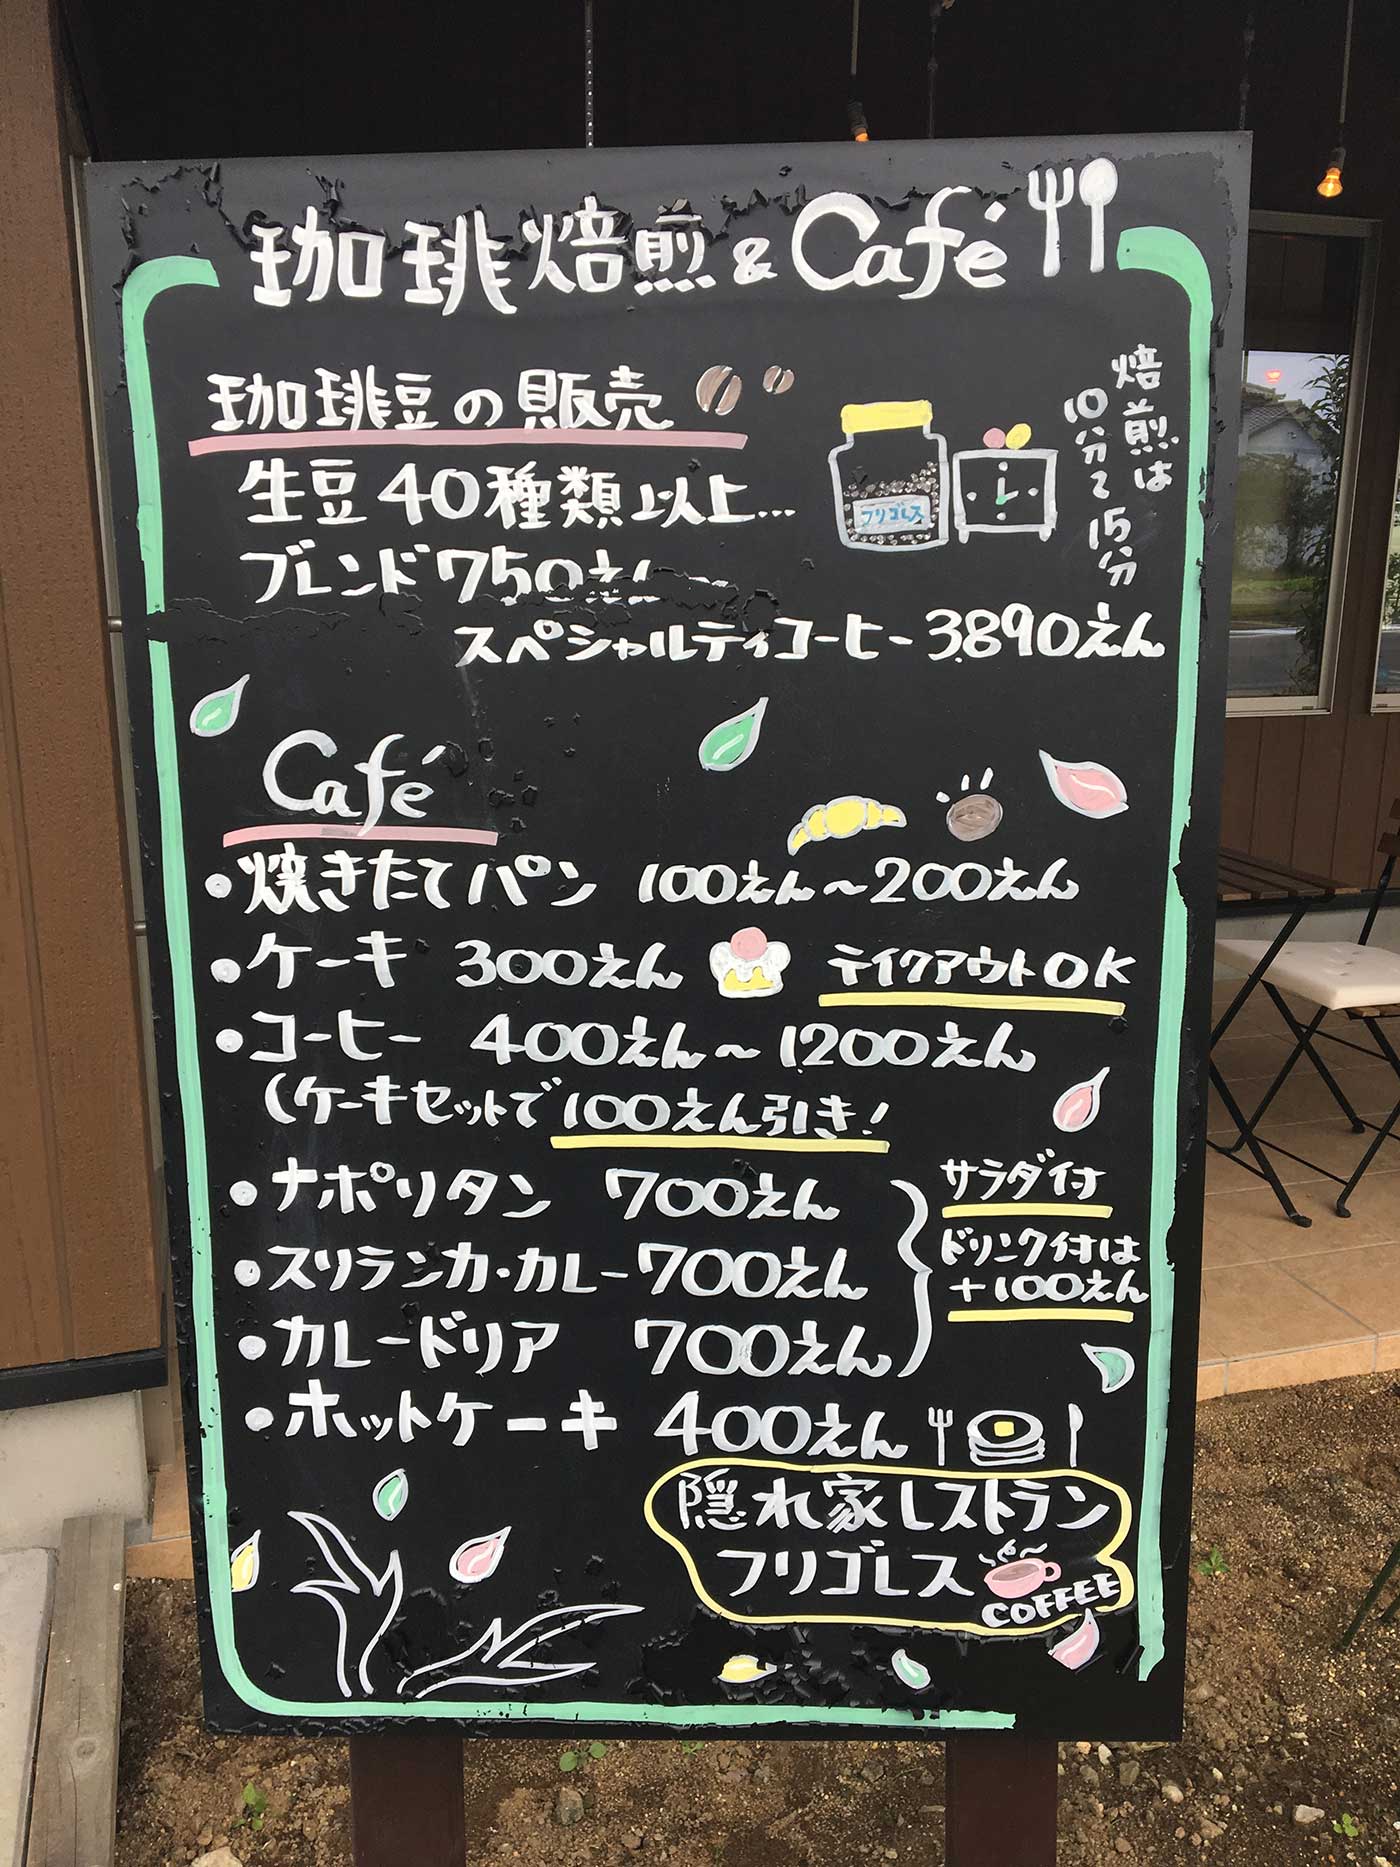 珈琲焙煎&Café
珈琲豆の販売
生豆40種類以上...
ブレンド750えん〜
スペシャルティコーヒー3,890えん
フリゴレス
焙煎は
10分で15分
Café
•焼きたてパン 100えん〜200えん
•ケーキ 300えん テイクアウトOK
•コーヒー 400えん〜1,200えん
(ケーキセットで100えん引き!
•ナポリタン 700えん
•スリランカ・カレー700えん
•カレードリア 700えん
サラダ付
ドリンク付は
+100えん
•ホットケーキ 400えん
隠れ家レストラン
フリゴレス
COFFEE